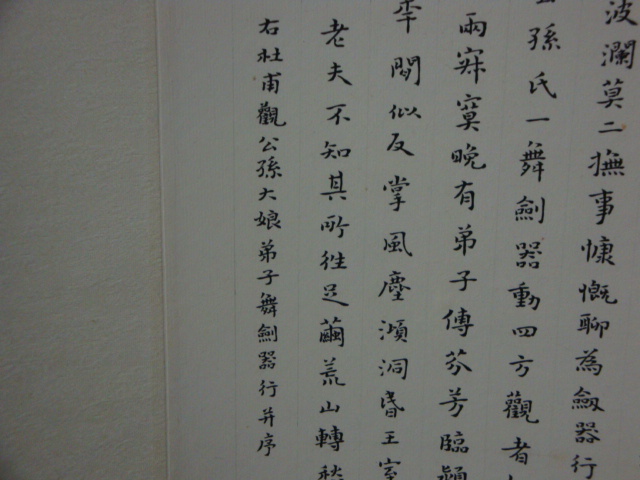 波瀾莫二撫事慷慨聊為劔器行
孫氏一舞劍器動四方觀者
兩寂寞晩有弟子傳芬芳臨潁
年間似反掌風塵澒洞昏王室
老夫不知其所往足繭荒山轉愁
右杜甫觀公孫大娘弟子舞劍器行并序